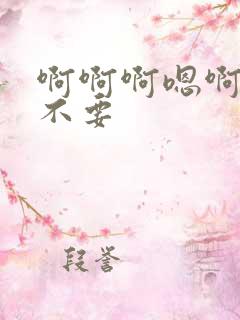 啊啊啊嗯啊
不要
段誉